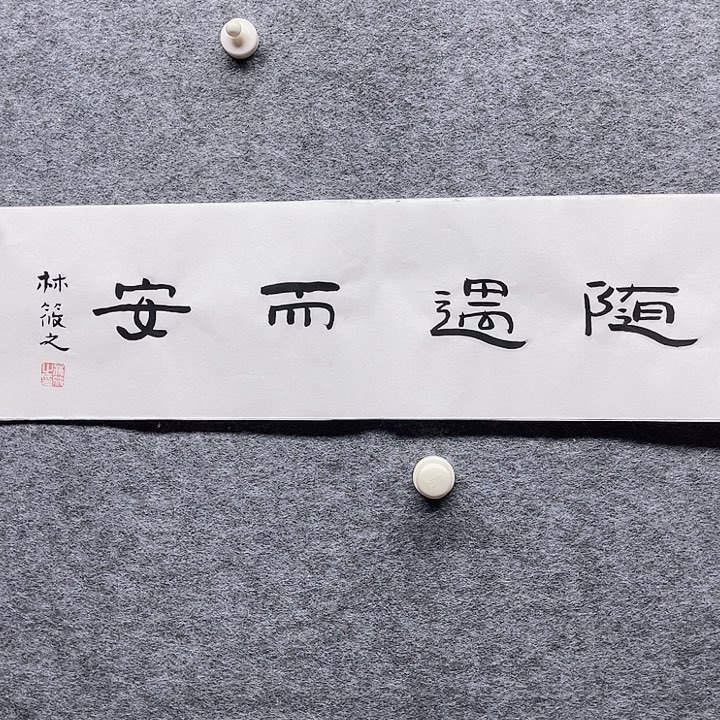 随遇而安
林筱之